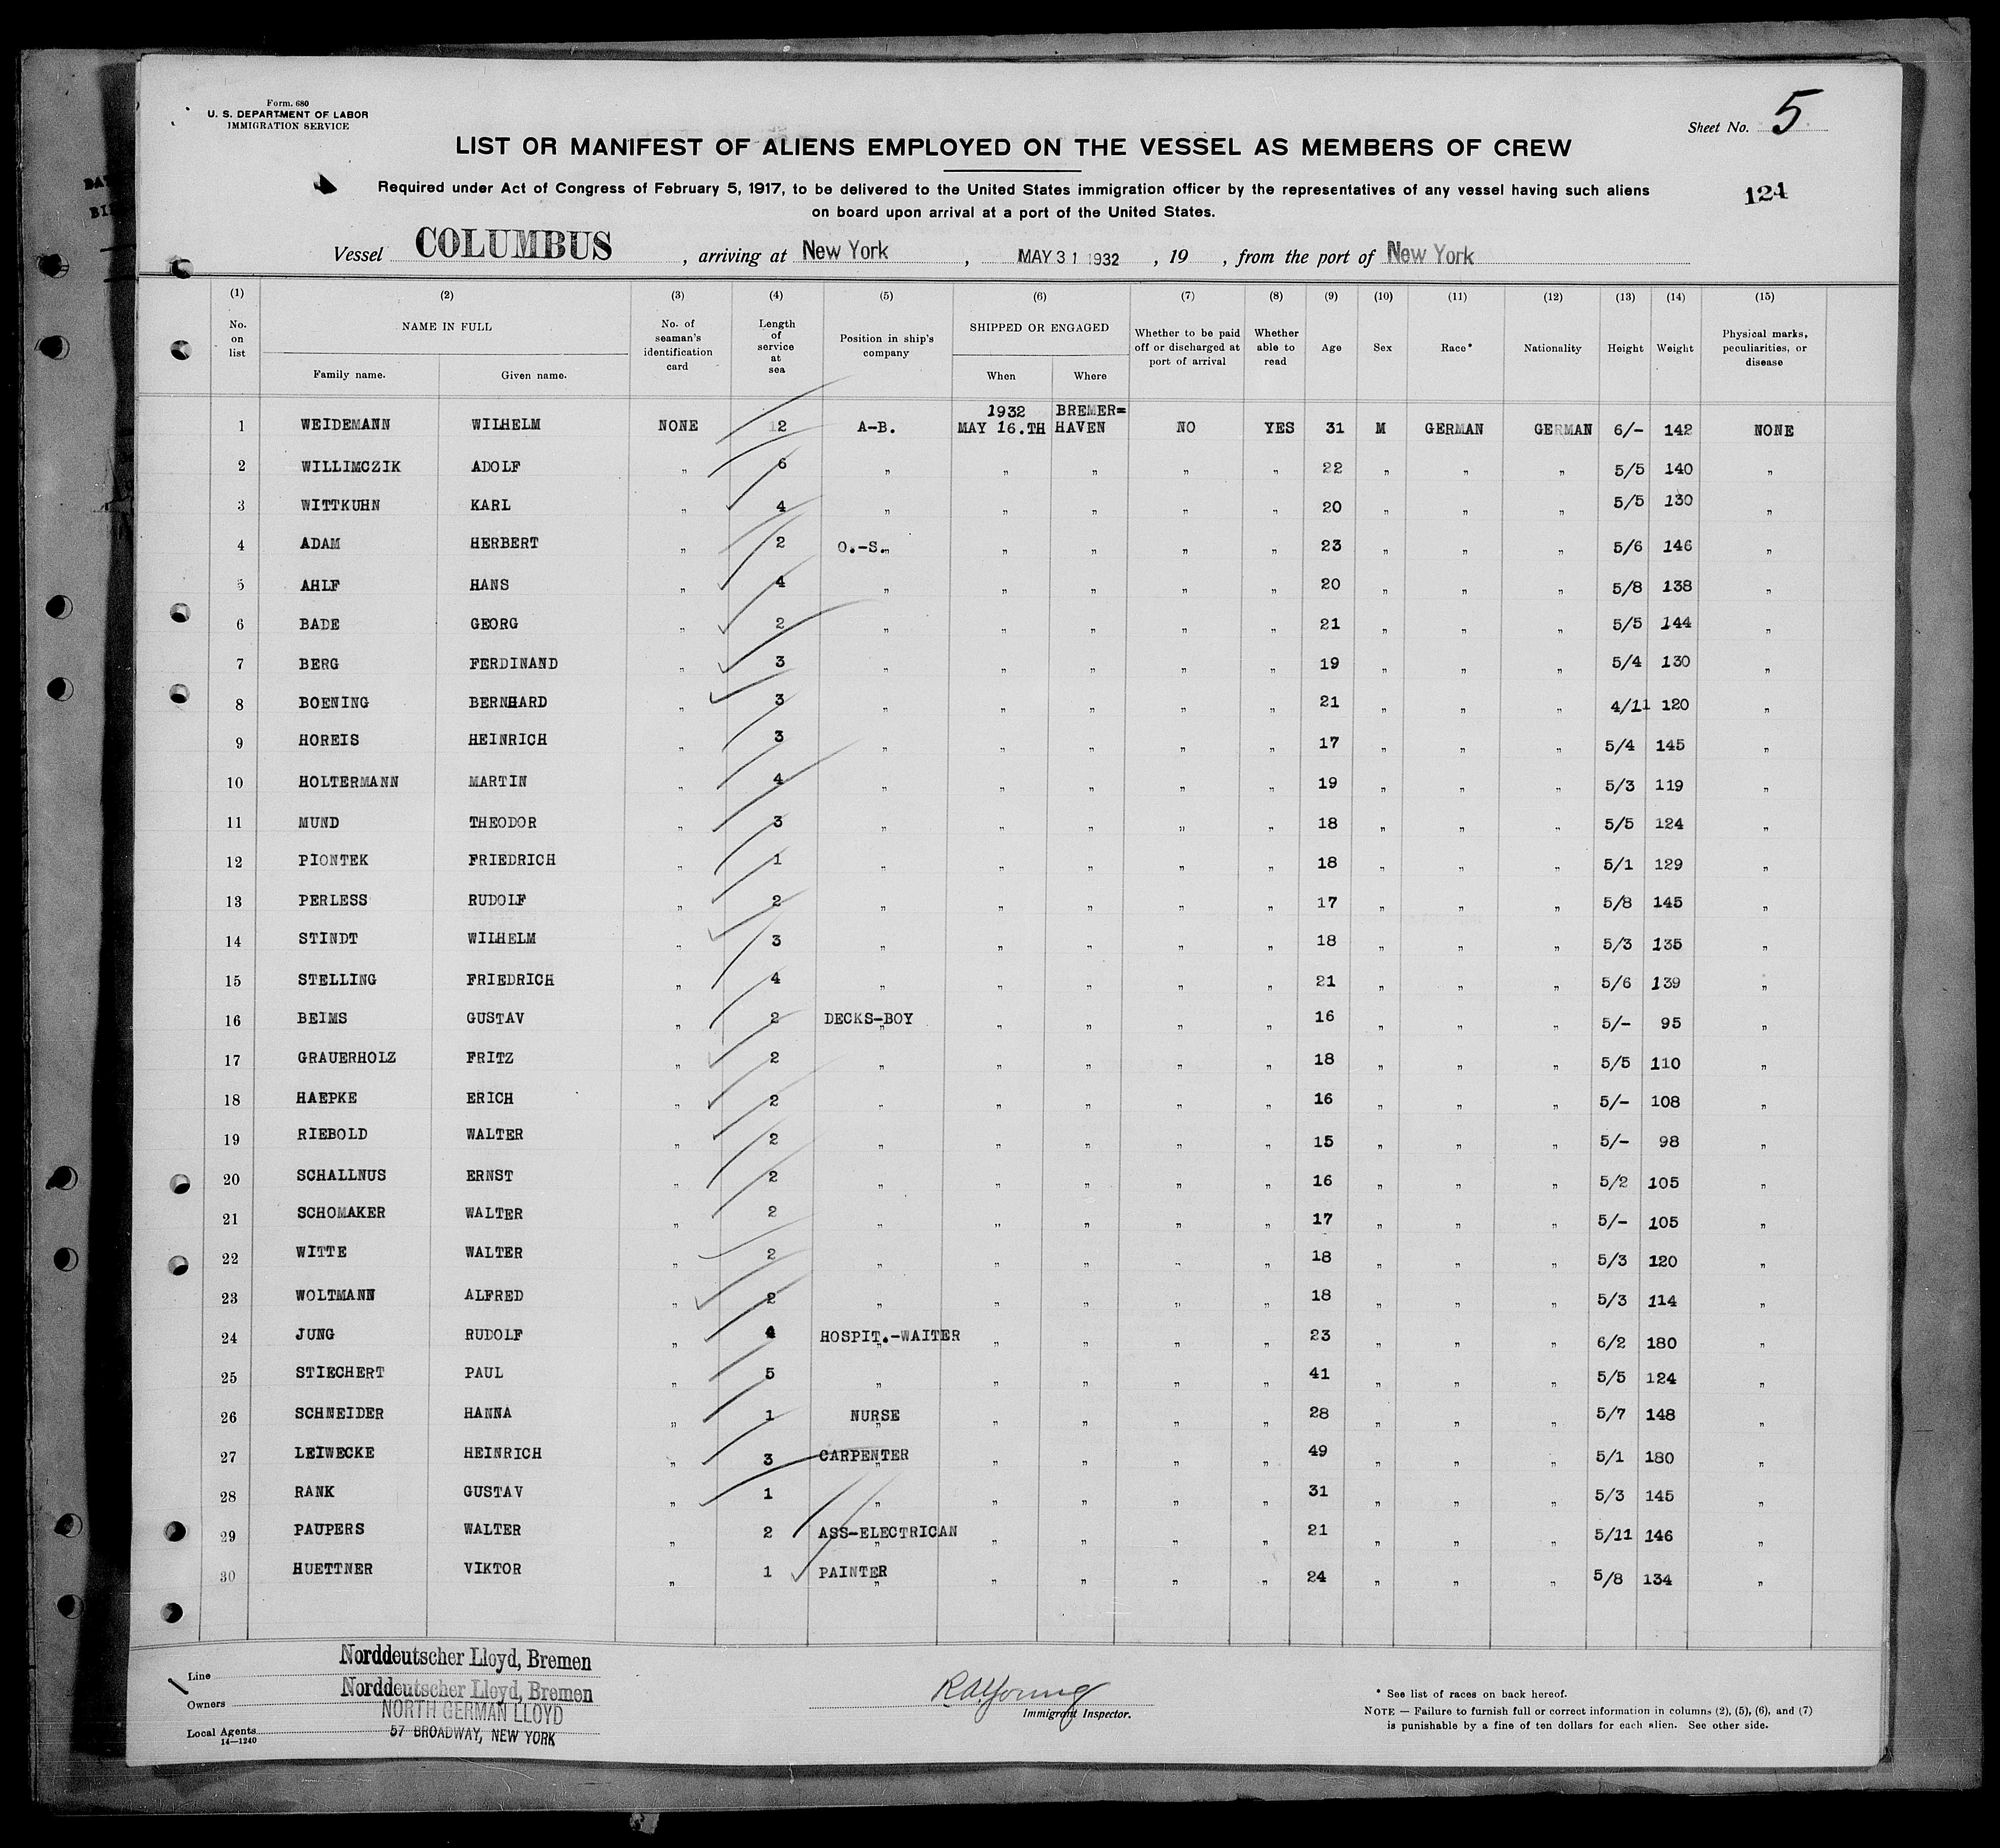 Form. 680
U. S. DEPARTMENT OF LABOR
IMMIGRATION SERVICE
Sheet No. 5
LIST OR MANIFEST OF ALIENS EMPLOYED ON THE VESSEL AS MEMBERS OF CREW
Required under Act of Congress of February 5, 1917, to be delivered to the United States immigration officer by the representatives of any vessel having such aliens
on board upon arrival at a port of the United States.
124
Vessel COLUMBUS , arriving at New York , MAY 31 1932 , 19 , from the port of New York
(1) (2) (3) (4) (5) (6) (7) (8) (9) (10) (11) (12) (13) (14) (15)
No. on list NAME IN FULL Family name. Given name. No. of seaman's identification card Length of service at sea Position in ship's company SHIPPED OR ENGAGED When Where Whether to be paid off or discharged at port of arrival Whether able to read Age Sex Race* Nationality Height Weight Physical marks, peculiarities, or disease
1932 BREMER=
1 WEIDEMANN WILHELM NONE 12 A-B. MAY 16.TH HAVEN NO YES 31 M GERMAN GERMAN 6/- 142 NONE
2 WILLIMCZIK ADOLF " 6 " " " " " 22 " " " 5/5 140 "
3 WITTKUHN KARL " 4 " " " " " 20 " " " 5/5 130 "
4 ADAM HERBERT " 2 O.-S." " " " " 23 " " " 5/6 146 "
5 AHLF HANS " 4 " " " " " 20 " " " 5/8 138 "
6 BADE GEORG " 2 " " " " " 21 " " " 5/5 144 "
7 BERG FERDINAND " 3 " " " " " 19 " " " 5/4 130 "
8 BOENING BERNHARD " 3 " " " " " 21 " " " 4/11 120 "
9 HOREIS HEINRICH " 3 " " " " " 17 " " " 5/4 145 "
10 HOLTERMANN MARTIN " 4 " " " " " 19 " " " 5/3 119 "
11 MUND THEODOR " 3 " " " " " 18 " " " 5/5 124 "
12 PIONTEK FRIEDRICH " 1 " " " " " 18 " " " 5/1 129 "
13 PERLESS RUDOLF " 2 " " " " " 17 " " " 5/8 145 "
14 STINDT WILHELM " 3 " " " " " 18 " " " 5/3 135 "
15 STELLING FRIEDRICH " 4 " " " " " 21 " " " 5/6 139 "
16 BEIMS GUSTAV " 2 DECKS-BOY " " " " 16 " " " 5/- 95 "
17 GRAUERHOLZ FRITZ " 2 " " " " " 18 " " " 5/5 110 "
18 HAEPKE ERICH " 2 " " " " " 16 " " " 5/- 108 "
19 RIEBOLD WALTER " 2 " " " " " 15 " " " 5/- 98 "
20 SCHALLNUS ERNST " 2 " " " " " 16 " " " 5/2 105 "
21 SCHOMAKER WALTER " 2 " " " " " 17 " " " 5/- 105 "
22 WITTE WALTER " 2 " " " " " 18 " " " 5/3 120 "
23 WOLTMANN ALFRED " 2 " " " " " 18 " " " 5/3 114 "
24 JUNG RUDOLF " 4 HOSPIT.-WAITER " " " " 23 " " " 6/2 180 "
25 STIECHERT PAUL " 5 " " " " " 41 " " " 5/5 124 "
26 SCHNEIDER HANNA " 1 NURSE " " " " 28 " " " 5/7 148 "
27 LEIWECKE HEINRICH " 3 CARPENTER " " " " 49 " " " 5/1 180 "
28 RANK GUSTAV " 1 " " " " " 31 " " " 5/3 145 "
29 PAUPERS WALTER " 2 ASS-ELECTRICAN " " " " 21 " " " 5/11 146 "
30 HUETTNER VIKTOR " 1 PAINTER " " " " 24 " " " 5/8 134 "
Line Norddeutscher Lloyd, Bremen
Owners Norddeutscher Lloyd, Bremen
NORTH GERMAN LLOYD
Local Agents 57 BROADWAY, NEW YORK
14—1240
R.A. Young
Immigrant Inspector.
* See list of races on back hereof.
NOTE — Failure to furnish full or correct information in columns (2), (5), (6), and (7)
is punishable by a fine of ten dollars for each alien. See other side.